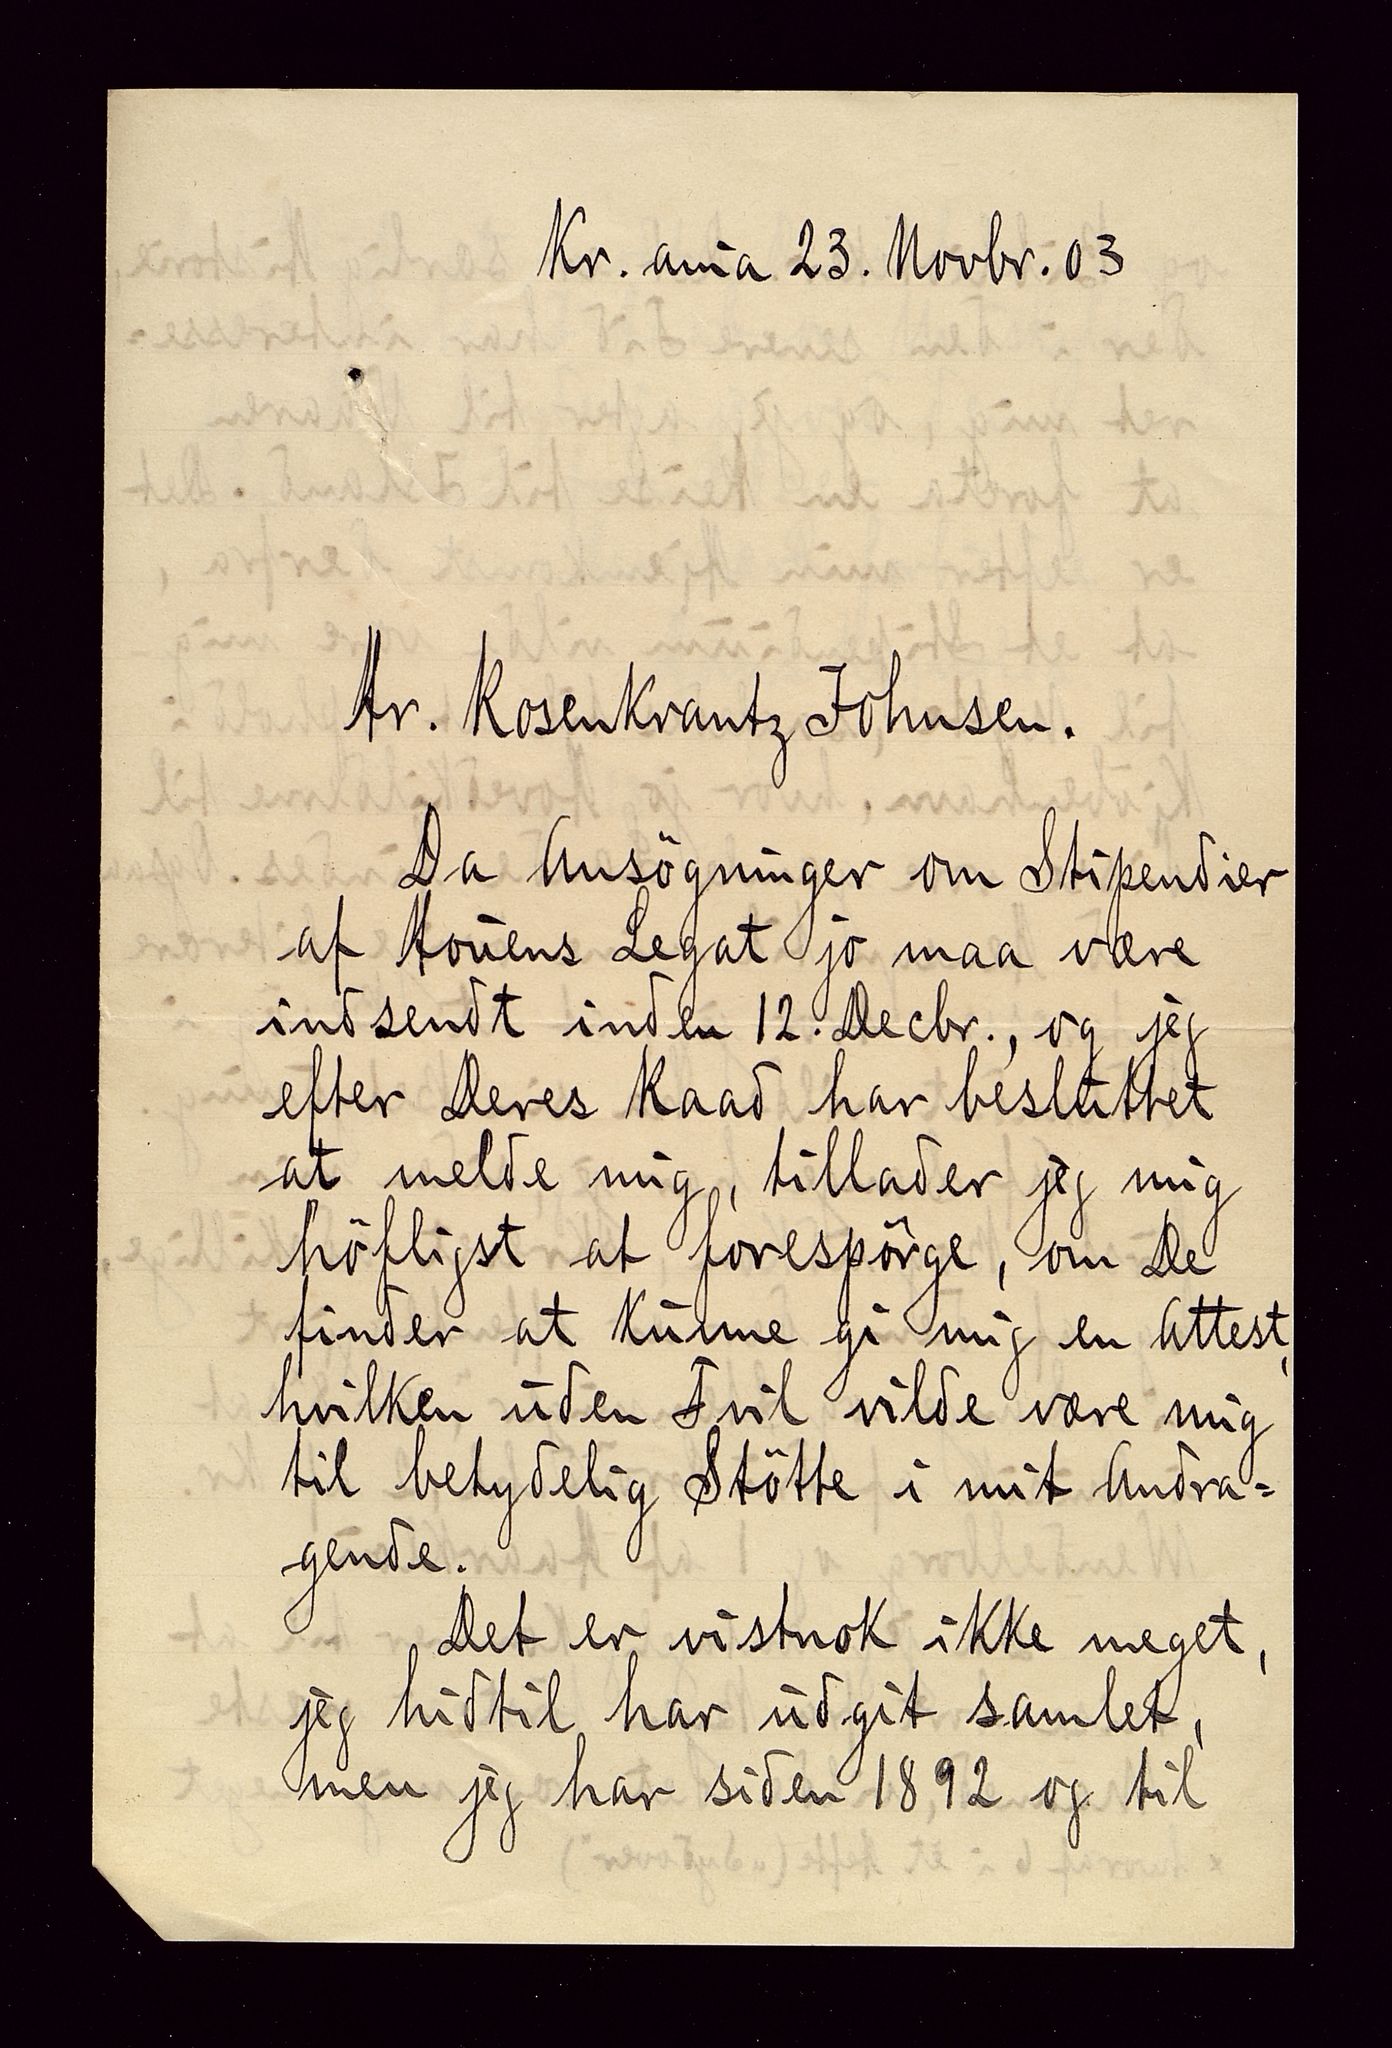 Kr. ania 23. Novbr. 03
Hr. Rosenkrantz Johnsen.
Da Ansögninger om Stipendier
af Houens Legat jo maa være
indsendt inden 12. Decbr., og jeg
efter Deres Raad har besluttet
at melde mig, tillader jeg mig
höfligst at forespörge, om De
finder at kunne gi mig en Attest,
hvilken uden Tvil vilde være mig
til betydelig Stötte i mit Andra=
gende.
Det er vistnok ikke meget,
jeg hidtil har udgit samlet,
men jeg har siden 1892 og til